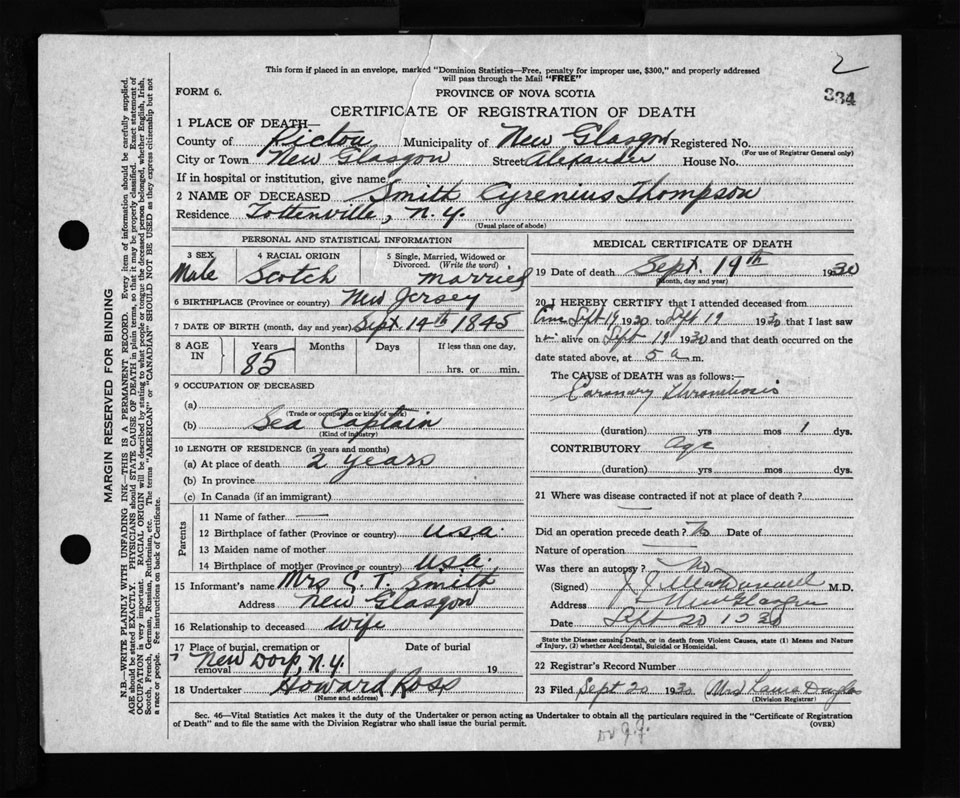 2
334
This form if placed in an envelope, marked "Dominion Statistics—Free, penalty for improper use, $300," and properly addressed
will pass through the Mail "FREE"
FORM 6.
PROVINCE OF NOVA SCOTIA
CERTIFICATE OF REGISTRATION OF DEATH
1 PLACE OF DEATH—
County of Pictou Municipality of New Glasgow Registered No.
(For use of Registrar General only)
City or Town New Glasgow Street Alexander House No.
If in hospital or institution, give name
2 NAME OF DECEASED Smith Cyrenius Thompson
Residence Tottenville, N.Y.
(Usual place of abode)
PERSONAL AND STATISTICAL INFORMATION
3 SEX Male
4 RACIAL ORIGIN Scotch
5 Single, Married, Widowed or
Divorced. (Write the word)
Married
6 BIRTHPLACE (Province or country) New Jersey
7 DATE OF BIRTH (month, day and year) Sept. 14th 1845
8 AGE IN Years 85 Months Days If less than one day,
hrs. or min.
9 OCCUPATION OF DECEASED
(a)
(Trade or occupation or kind of work)
(b) Sea Captain
(Kind of industry)
10 LENGTH OF RESIDENCE (in years and months)
(a) At place of death 2 years
(b) In province
(c) In Canada (if an immigrant)
Parents
11 Name of father —
12 Birthplace of father (Province or country) U.S.A.
13 Maiden name of mother
14 Birthplace of mother (Province or country) U.S.A.
15 Informant's name Mrs C. T. Smith
Address New Glasgow
16 Relationship to deceased Wife
17 Place of burial, cremation or
removal New Dorp, N.Y.
Date of burial
19
18 Undertaker Howard Ross
(Name and address)
MEDICAL CERTIFICATE OF DEATH
19 Date of death Sept. 19th 1930
(Month, day and year)
20 I HEREBY CERTIFY that I attended deceased from
Sept 19 1930 to Sept 19 1930 that I last saw
him alive on Sept 19 1930 and that death occurred on the
date stated above, at 5 a m.
The CAUSE of DEATH was as follows:—
Coronary Thrombosis
(duration) yrs mos 1 dys.
CONTRIBUTORY Age
(duration) yrs mos dys.
21 Where was disease contracted if not at place of death?
—
Did an operation precede death? No Date of
Nature of operation —
Was there an autopsy? No
(Signed) J. J. MacDonald M.D.
Address New Glasgow
Date Sept 20 1930
State the Disease causing Death, or in death from Violent Causes, state (1) Means and Nature
of Injury, (2) whether Accidental, Suicidal or Homicidal.
22 Registrar's Record Number
23 Filed Sept 20 1930 (Mrs) Douglas
(Division Registrar)
Sec. 46—Vital Statistics Act makes it the duty of the Undertaker or person acting as Undertaker to obtain all the particulars required in the "Certificate of Registration
of Death" and to file the same with the Division Registrar who shall issue the burial permit.
(OVER)
MARGIN RESERVED FOR BINDING
N.B.—WRITE PLAINLY WITH UNFADING INK—THIS IS A PERMANENT RECORD. Every item of information should be carefully supplied.
AGE should be stated EXACTLY. PHYSICIANS should STATE CAUSE OF DEATH in plain terms, so that it may be properly classified. Exact statement of
OCCUPATION is very important. RACIAL ORIGIN will be described by stating to what people or tongue the deceased person belonged, whether English, Irish,
Scotch, French, German, Russian, Ruthenian, etc. The terms "AMERICAN" or "CANADIAN" SHOULD NOT BE USED as they express citizenship but not
a race or people. Fee instructions on back of Certificate.